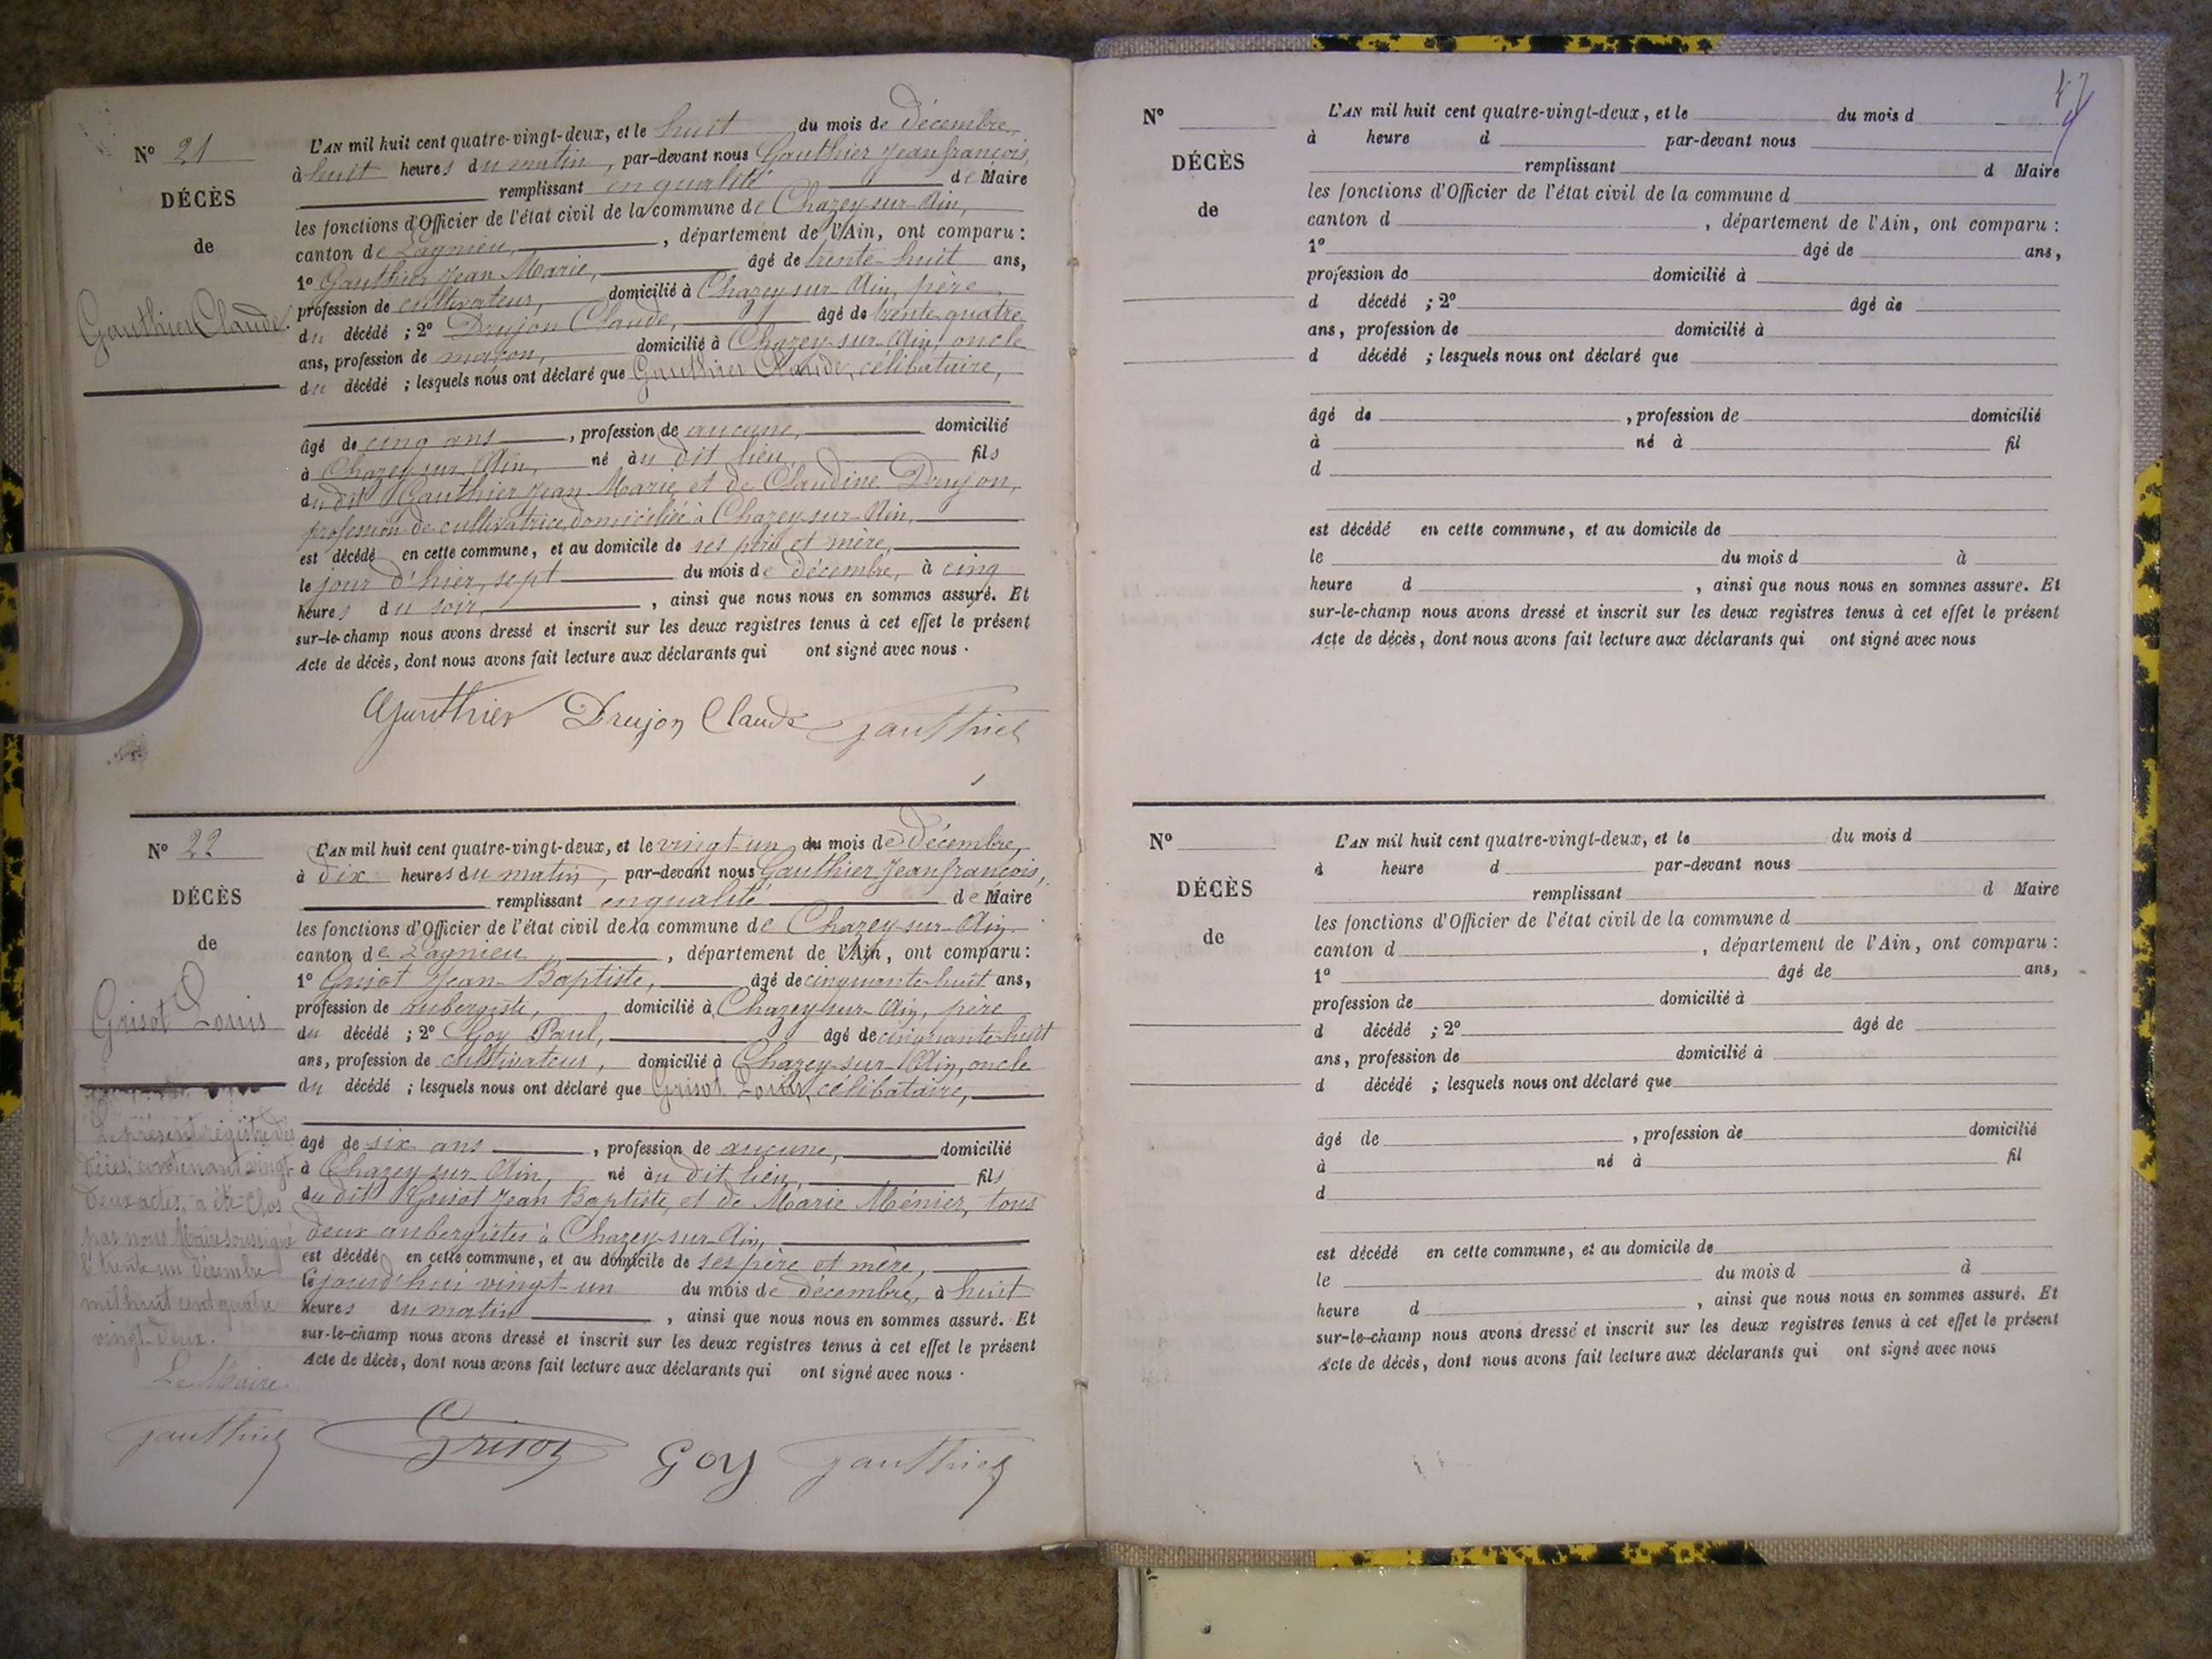 N° 21
DÉCÈS
de
Gauthier Claude.
L'AN mil huit cent quatre-vingt-deux, et le huit du mois de décembre,
à huit heures du matin, par-devant nous Gauthier Jean françois,
remplissant en qualité de Maire
les fonctions d'Officier de l'état civil de la commune de Chazey-sur-Ain,
canton de Lagnieu, département de l'Ain, ont comparu :
1° Gauthier Jean Marie, âgé de trente-huit ans,
profession de cultivateur, domicilié à Chazey-sur-Ain, père
du décédé ; 2° Drujon Claude, âgé de trente-quatre
ans, profession de maçon, domicilié à Chazey-sur-Ain, oncle
du décédé ; lesquels nous ont déclaré que Gauthier Claude, célibataire,
âgé de cinq ans, profession de aucune, domicilié
à Chazey-sur-Ain, né au dit lieu, fils
du dit Gauthier Jean Marie, et de Claudine Drujon,
profession de cultivatrice, domiciliée à Chazey-sur-Ain,
est décédé en cette commune, et au domicile de ses père et mère,
le jour d'hier, sept du mois de décembre, à cinq
heures du soir, ainsi que nous nous en sommes assuré. Et
sur-le-champ nous avons dressé et inscrit sur les deux registres tenus à cet effet le présent
Acte de décès, dont nous avons fait lecture aux déclarants qui ont signé avec nous.
Gauthier Drujon Claude Gauthier
N° 22
DÉCÈS
de
Grisot Louis
L'AN mil huit cent quatre-vingt-deux, et le vingt-un du mois de décembre,
à dix heures du matin, par-devant nous Gauthier Jean françois,
remplissant en qualité de Maire
les fonctions d'Officier de l'état civil de la commune de Chazey-sur-Ain
canton de Lagnieu, département de l'Ain, ont comparu :
1° Grisot Jean-Baptiste, âgé de cinquante-huit ans,
profession de aubergiste, domicilié à Chazey-sur-Ain, père
du décédé ; 2° Goy Paul, âgé de cinquante-huit
ans, profession de cultivateur, domicilié à Chazey-sur-Ain, oncle
du décédé ; lesquels nous ont déclaré que Grisot Louis, célibataire,
âgé de six ans, profession de aucune, domicilié
à Chazey-sur-Ain, né au dit lieu, fils
du dit Grisot Jean Baptiste, et de Marie Ménier, tous
deux aubergistes à Chazey-sur-Ain,
est décédé en cette commune, et au domicile de ses père et mère,
le jourd'hui vingt-un du mois de décembre, à huit
heures du matin, ainsi que nous nous en sommes assuré. Et
sur-le-champ nous avons dressé et inscrit sur les deux registres tenus à cet effet le présent
Acte de décès, dont nous avons fait lecture aux déclarants qui ont signé avec nous.
Le présent registre des
décès, contenant vingt-
deux actes, a été Clos
par nous Maire soussigné
le trente-un décembre
mil huit cent quatre
vingt-deux.
Le Maire
Gauthier Grisot Goy Gauthier
N°
DÉCÈS
de
L'AN mil huit cent quatre-vingt-deux, et le du mois d
à heure d par-devant nous
remplissant d Maire
les fonctions d'Officier de l'état civil de la commune d
canton d , département de l'Ain, ont comparu :
1° âgé de ans,
profession de domicilié à
d décédé ; 2° âgé de
ans, profession de domicilié à
d décédé ; lesquels nous ont déclaré que
âgé de , profession de domicilié
à né à fil
d
est décédé en cette commune, et au domicile de
le du mois d à
heure d , ainsi que nous nous en sommes assuré. Et
sur-le-champ nous avons dressé et inscrit sur les deux registres tenus à cet effet le présent
Acte de décès, dont nous avons fait lecture aux déclarants qui ont signé avec nous
N°
DÉCÈS
de
L'AN mil huit cent quatre-vingt-deux, et le du mois d
à heure d par-devant nous
remplissant d Maire
les fonctions d'Officier de l'état civil de la commune d
canton d , département de l'Ain, ont comparu :
1° âgé de ans,
profession de domicilié à
d décédé ; 2° âgé de
ans, profession de domicilié à
d décédé ; lesquels nous ont déclaré que
âgé de , profession de domicilié
à né à fil
d
est décédé en cette commune, et au domicile de
le du mois d à
heure d , ainsi que nous nous en sommes assuré. Et
sur-le-champ nous avons dressé et inscrit sur les deux registres tenus à cet effet le présent
Acte de décès, dont nous avons fait lecture aux déclarants qui ont signé avec nous